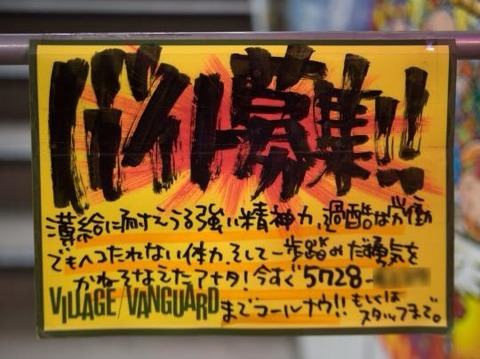 バイト募集!!
薄給に耐えうる強い精神力、過酷な労働
でもヘコたれない体力、そして一歩踏みだす勇気を
かねそなえたアナタ!今すぐ5728-
VILLAGE/VANGUARD までコールナウ!! もしくは
スタッフまで。